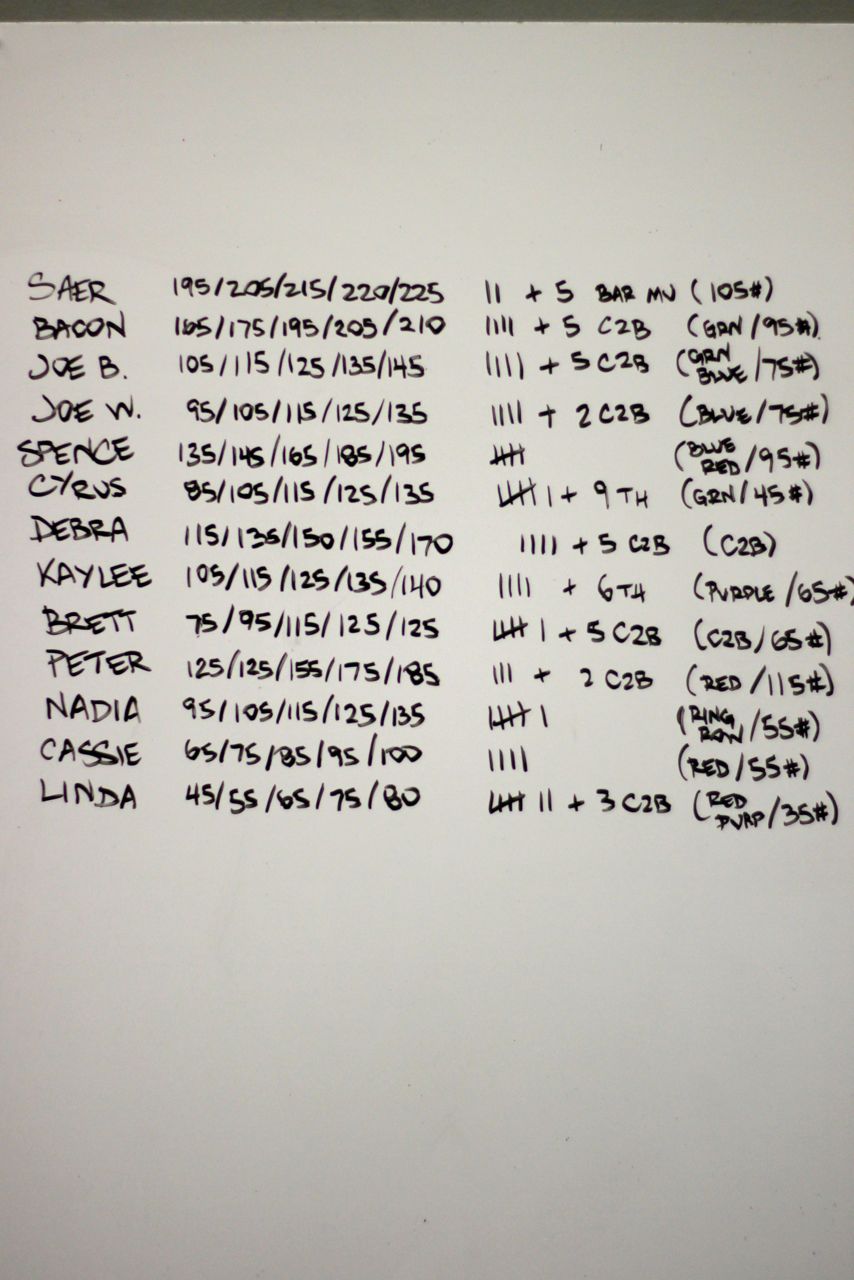 SAER 195/205/215/220/225 || + 5 BAR MU (105#)
BACON 165/175/195/205/210 |||| + 5 C2B (GRN/95#)
JOE B. 105/115/125/135/145 |||| + 5 C2B (GRN BLUE/75#)
JOE W. 95/105/115/125/135 |||| + 2 C2B (BLUE/75#)
SPENCE 135/145/165/185/195 卌 (BLUE RED/95#)
CYRUS 85/105/115/125/135 卌 | + 9 TH (GRN/45#)
DEBRA 115/135/150/155/170 |||| + 5 C2B (C2B)
KAYLEE 105/115/125/135/140 |||| + 6 TH (PURPLE/65#)
BRETT 75/95/115/125/125 卌 | + 5 C2B (C2B/65#)
PETER 125/125/155/175/185 ||| + 2 C2B (RED/115#)
NADIA 95/105/115/125/135 卌 | (RING ROW/55#)
CASSIE 65/75/85/95/100 |||| (RED/55#)
LINDA 45/55/65/75/80 卌 || + 3 C2B (RED PURP/35#)